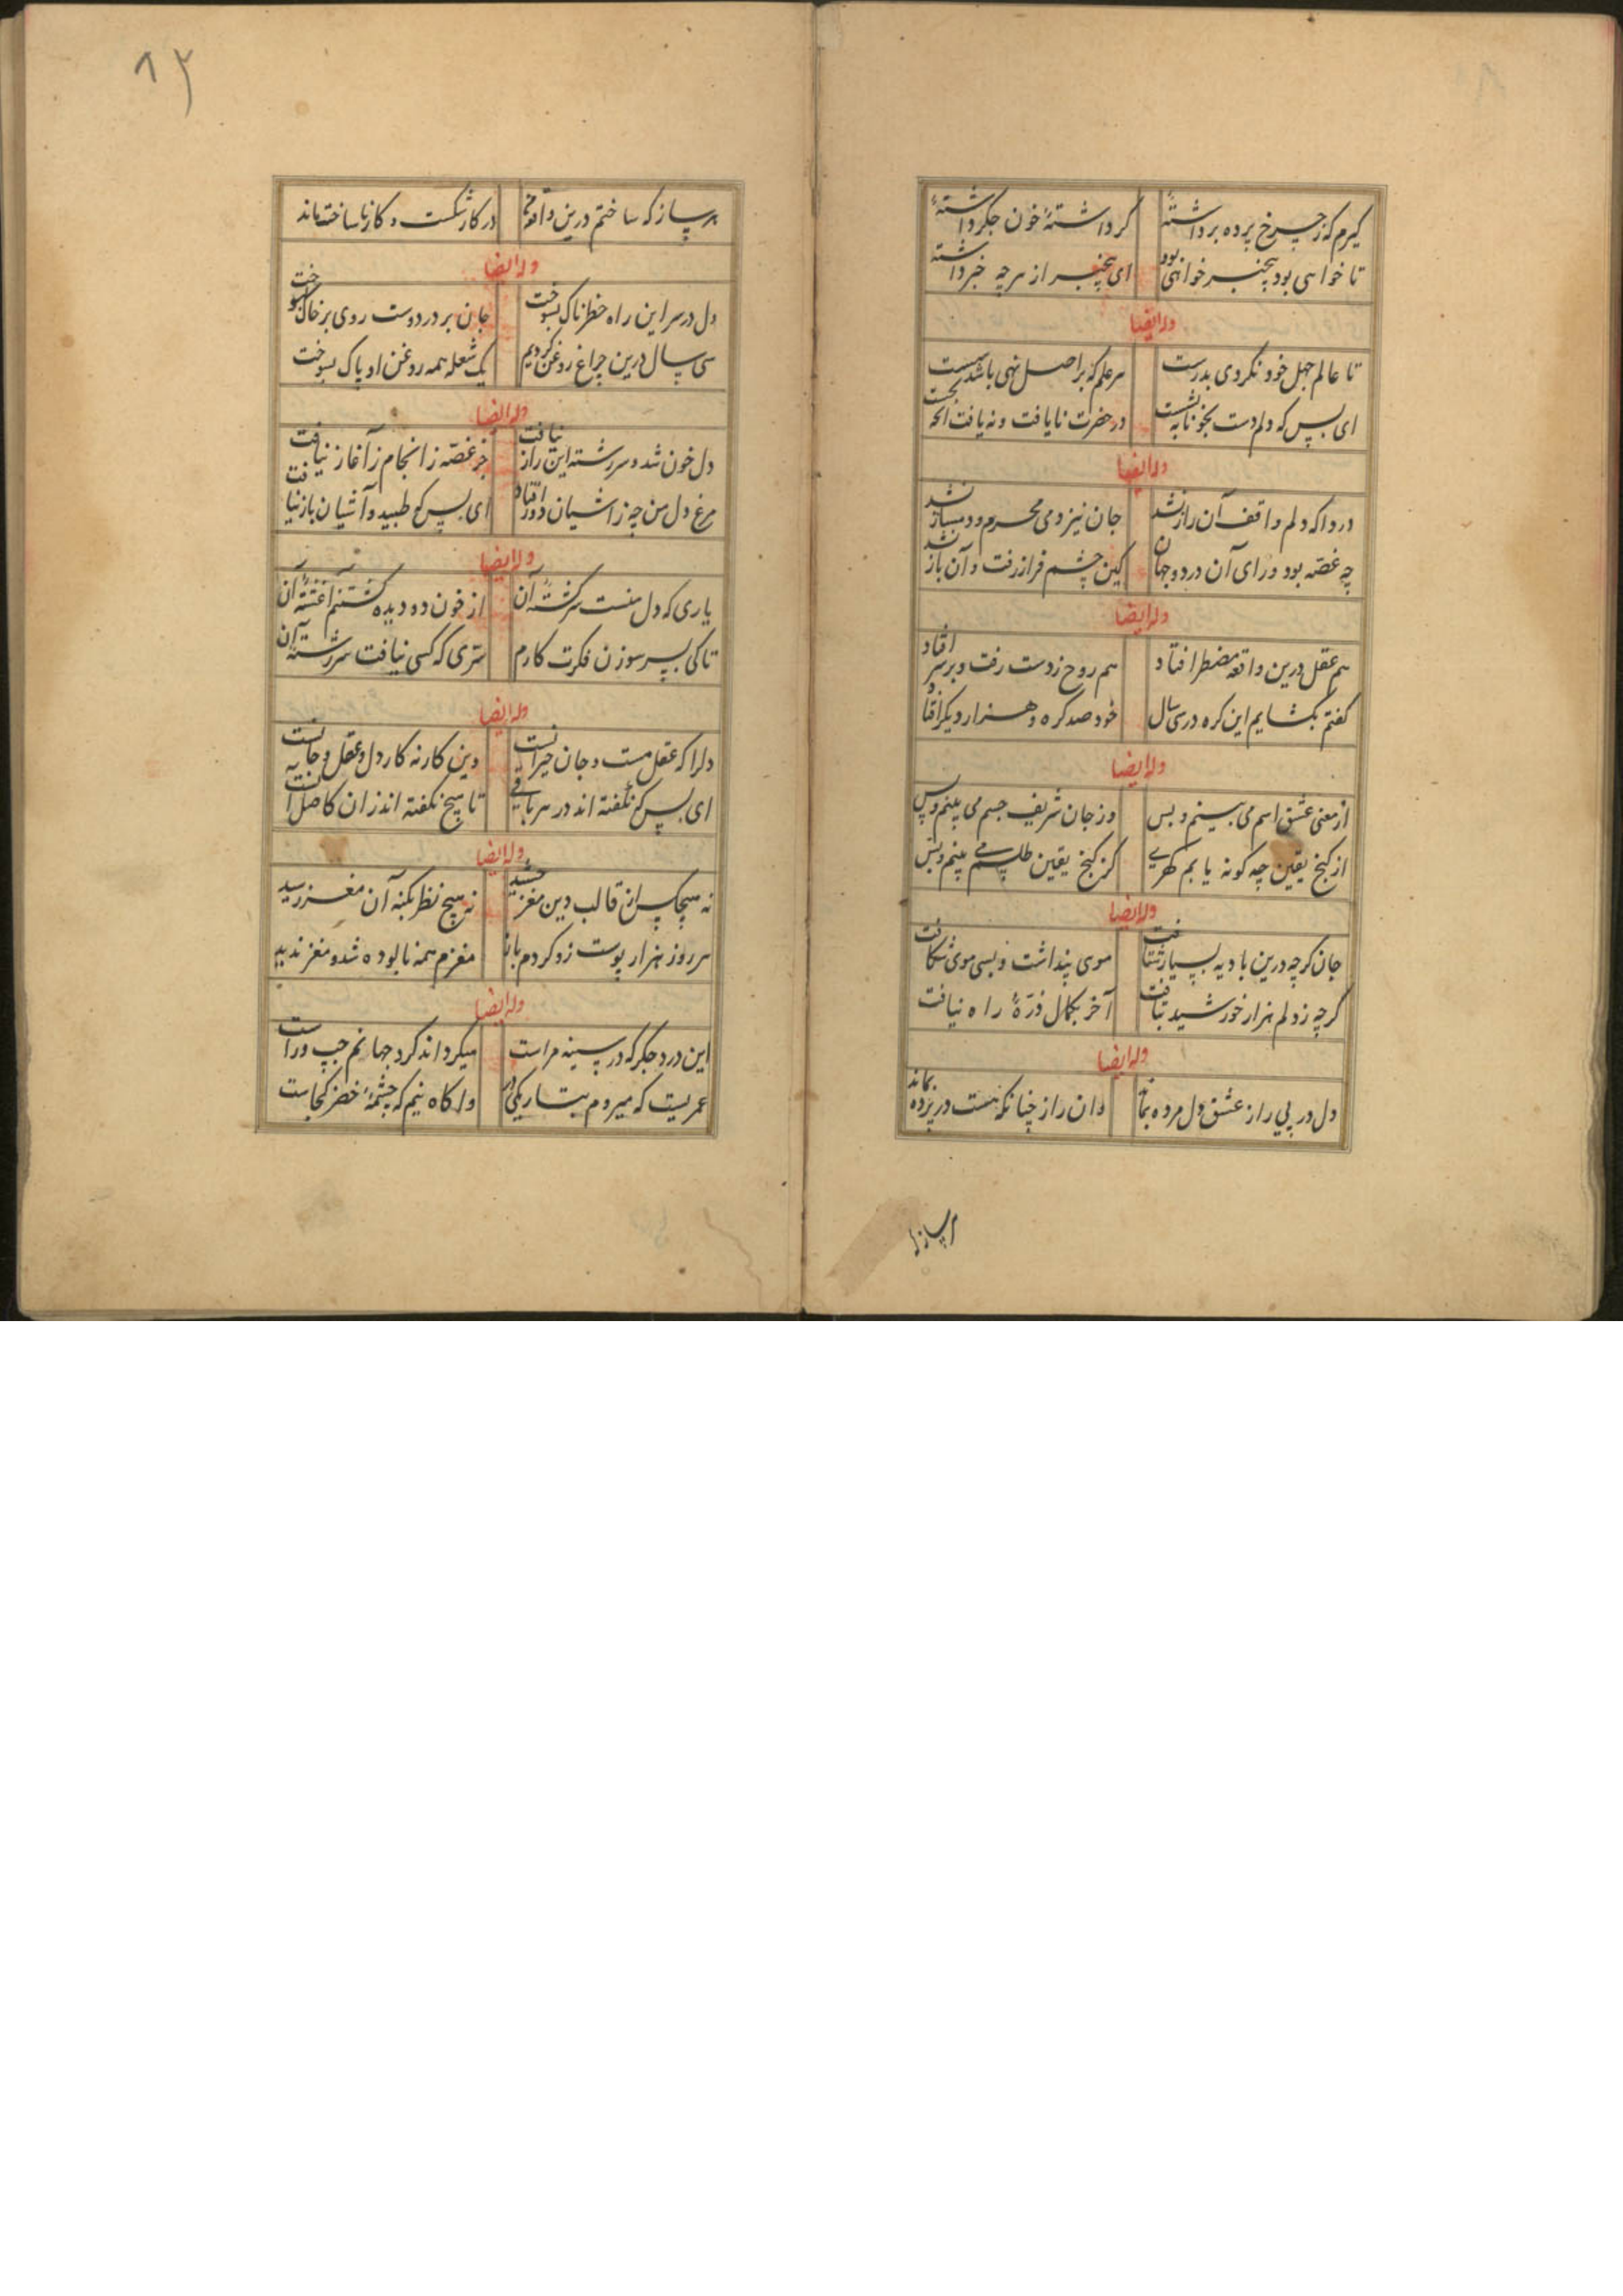 گیرم که ز چرخ پرده برداشتهٔ گر داشتهٔ خون جگر داشتهٔ
تا خواهی بود بیخبر خواهی بود ای بیخبر از هرچه خبر داشتهٔ
وله ایضا
تا عالم جهل خود نگردی بدرست هر علم که بر اصل نهی باشد سست
ای بس که دلم دست بخونابه بشست در حضرت نایافت و نه یافت نجست
وله ایضا
دردا که دلم واقف آن راز نشد جان نیز دمی محرم و دمساز نشد
چه غصه بود ورای آن در دو جهان کین چشم فراز رفت و آن باز نشد
وله ایضا
هم عقل درین واقعه مضطر افتاد هم روح ز دست رفت و بر سر افتاد
گفتم بگشایم این گره در سی سال خود صد گره و هزار دیگر افتاد
وله ایضا
از معنی عشق اسم می بینم و بس وز جان شریف جسم می بینم و بس
از گنج یقین چه گونه یابم گهری کز گنج یقین طلسم می بینم و بس
وله ایضا
جان گرچه درین بادیه بسیار شتافت موی پنداشت و بسی موی شکافت
گرچه ز دلم هزار خورشید بتافت آخر بکمال ذرهٔ راه نیافت
وله ایضا
دل در پی راز عشق دل مرده بماند وان راز چنانکه هست در پرده بماند
هر ساز که
۸۲
هر ساز که ساختم درین واقعه در کار شکست و کار ناساخته ماند
وله ایضا
دل در سر این راه خطرناک بسوخت جان بر در دوست روی بر خاک بسوخت
سی سال درین چراغ روغن کردیم یک شعله همه روغن او پاک بسوخت
وله ایضا
دل خون شد و سر رشته این راز نیافت جز غصه ز انجام ز آغاز نیافت
مرغ دل من چه ز آشیان دور افتاد ای بس که طپید و آشیان باز نیافت
وله ایضا
یاری که دل منست سرگشتهٔ آن از خون دو دیده گشتم آغشتهٔ آن
تا کی بسر سوزن فکرت کارم سری که کسی نیافت سر رشتهٔ آن
وله ایضا
دلرا که عقل مست و جان حیرانست وین کار نه کار دل و عقل و جانست
ای بس که نگفته اند در هر بابی تا هیچ نگفته اند زان کاصل آنست
وله ایضا
نه هیچکس از قالب دین مغز چشید نه هیچ نظر بکنه آن مغز رسید
هر روز هزار پوست زو کردم باز مغزم همه نابوده شد و مغز ندید
وله ایضا
این درد جگر که در سینه مراست میگرداند گرد جهانم چپ و راست
عمریست که میروم بتاریکی در واگاه نیم که چشمهٔ خضر کجاست